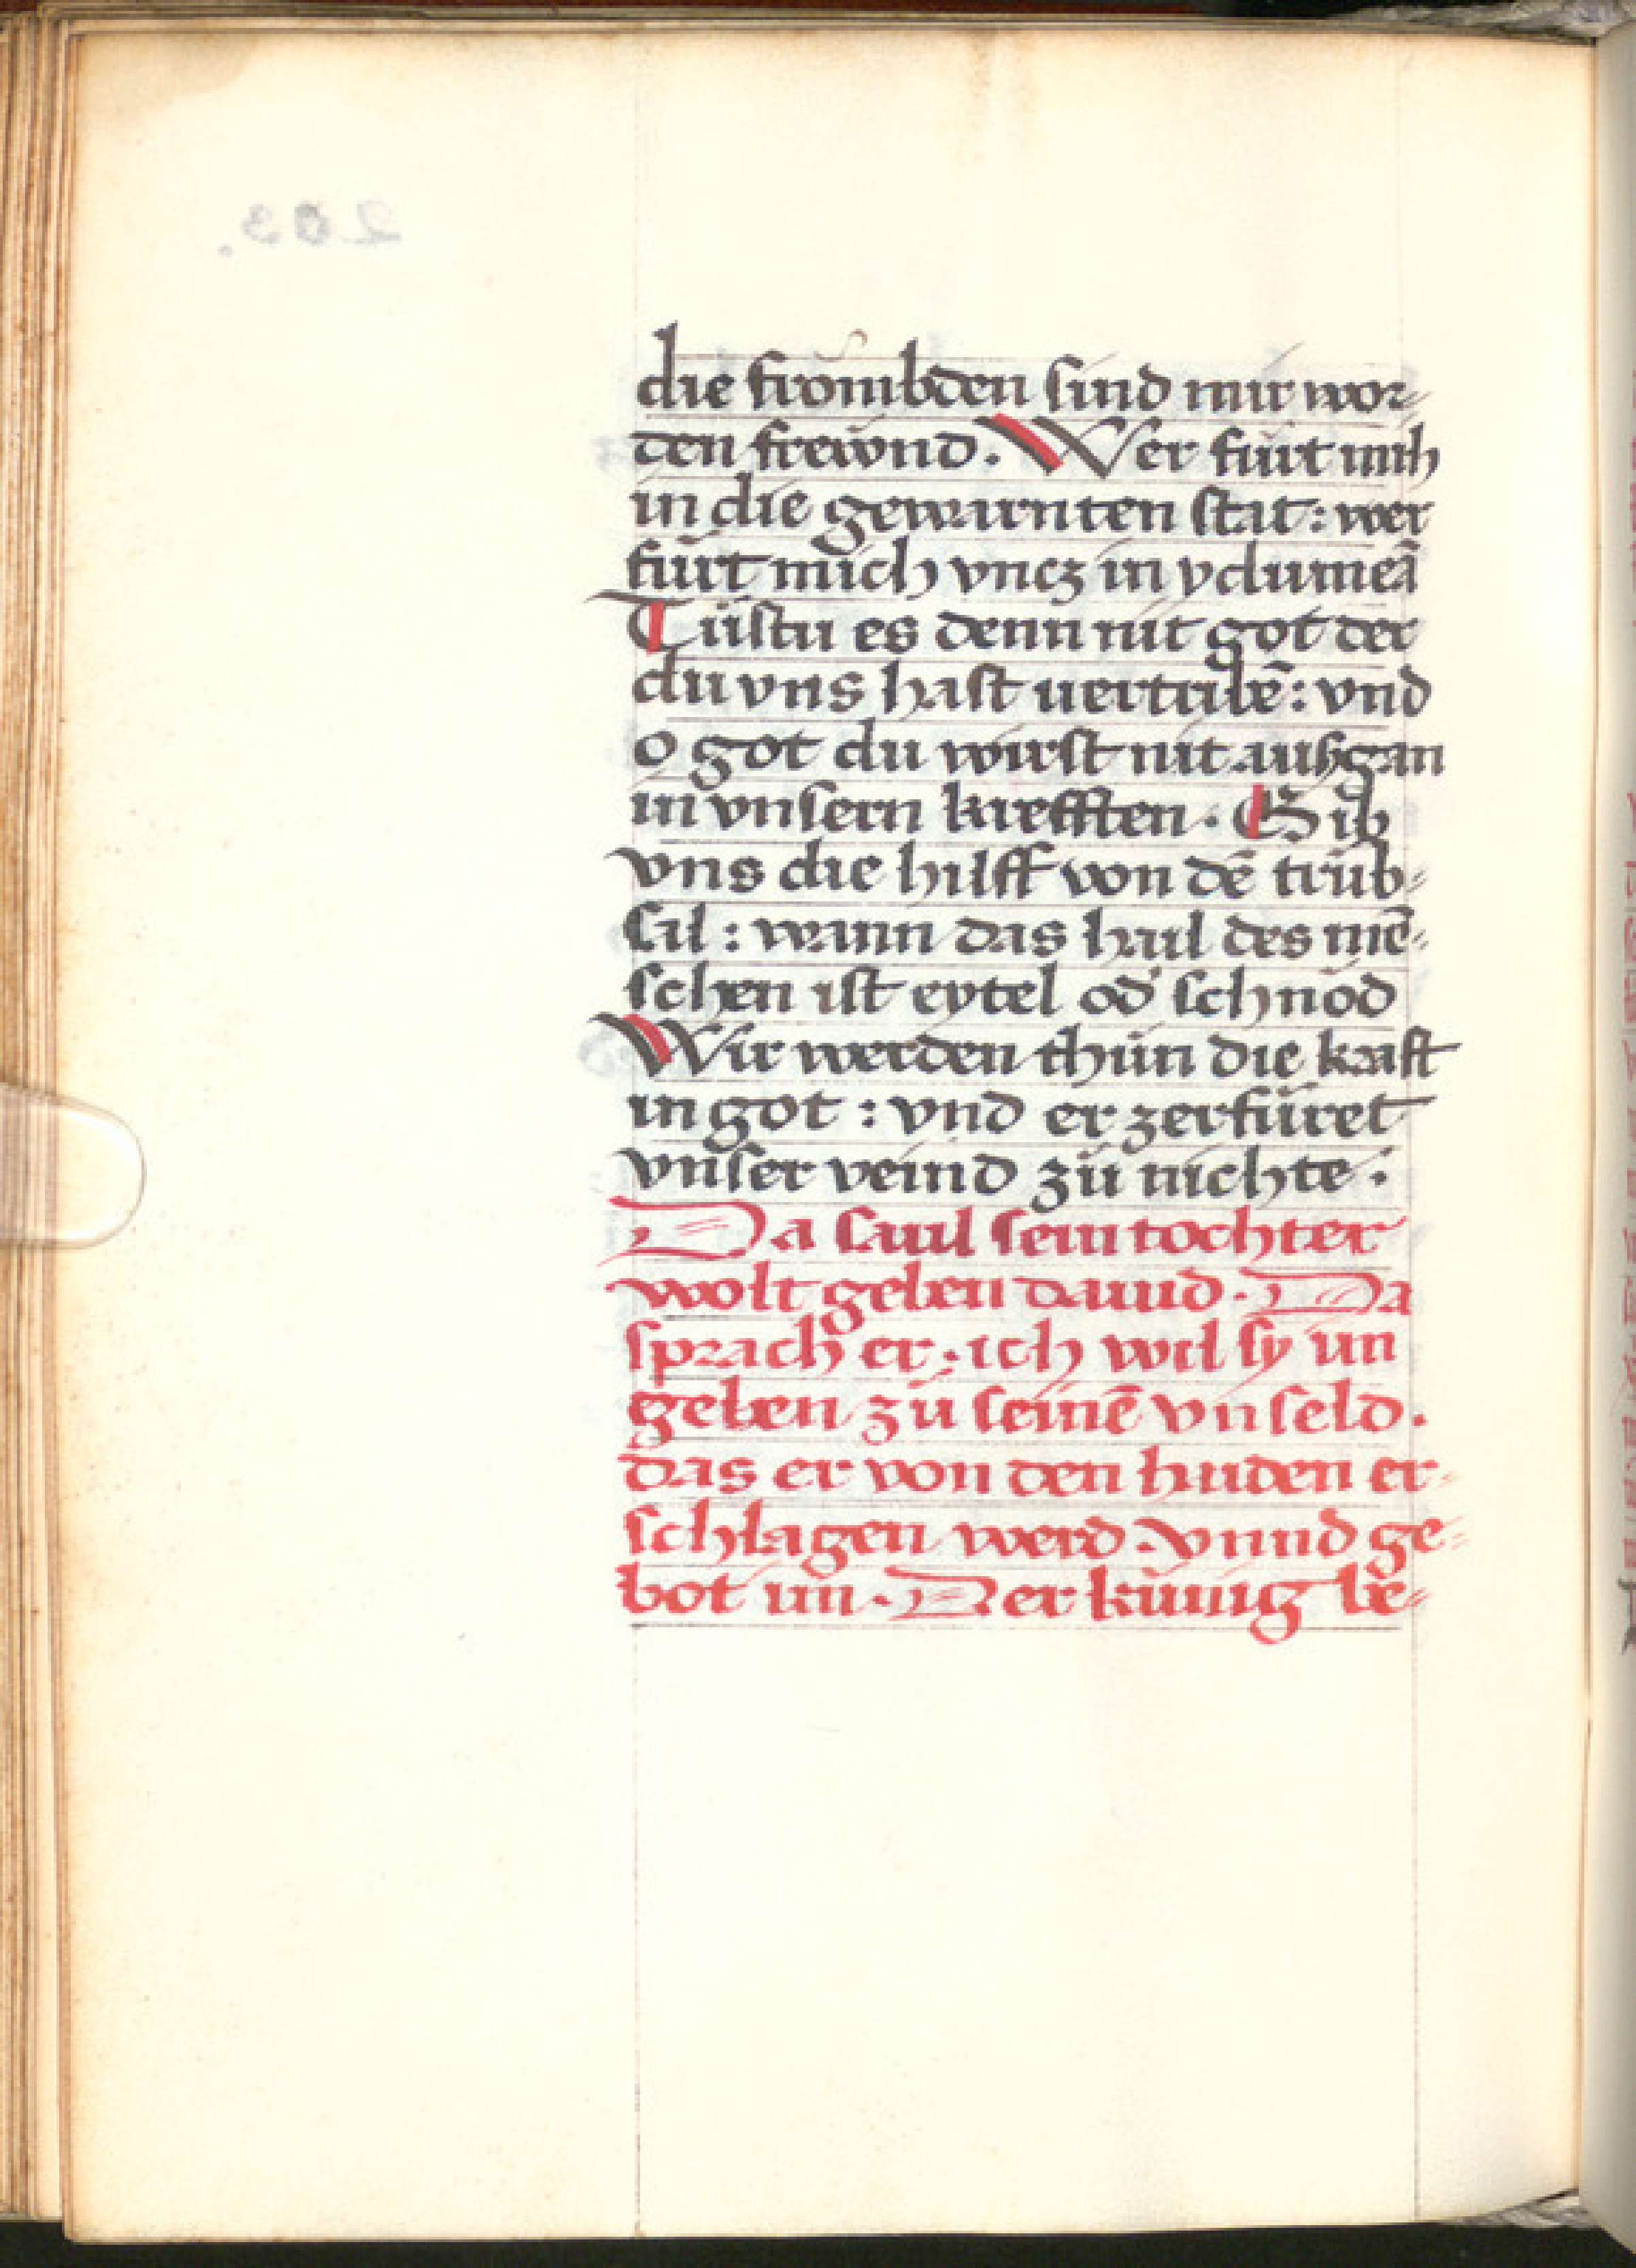 die frömbden sind mir wor-
den frewnd. Wer fürt mich
in die gewarnten stat: wer
fürt mich vncz in ydumeā
Tůstu es denn nit got der
du vns hast uertribē: vnd
o got du wirst nit aussgan
in vnsern krefften. Gib
vns die hilff von dē trüb-
sal: wann das hail des mē-
schen ist eytel od' schnöd
Wir werden thůn die kraft
in got: vnd er zerfüret
vnser veind zů nichte.
Da saul sein tochter
wolt geben dauid. Da
sprach er. ich wil sy im
geben zů seinē vnseld.
das er von den haiden er-
schlagen werd. vnnd ge-
bot im. Der künig be-